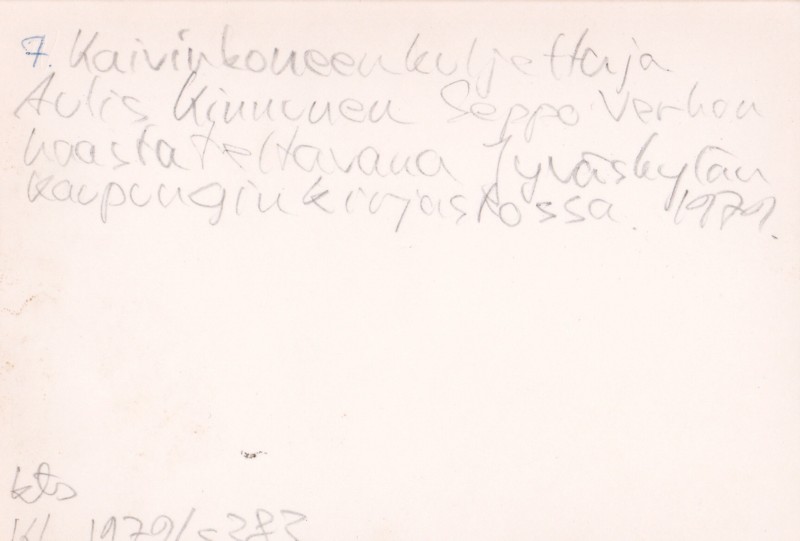 7. Kaivinkoneenkuljettaja
Aulis Kinnunen Seppo Verhon
haastateltavana Jyväskylän
kaupunginkirjastossa. 1979.
kts
KL 1979/s 383